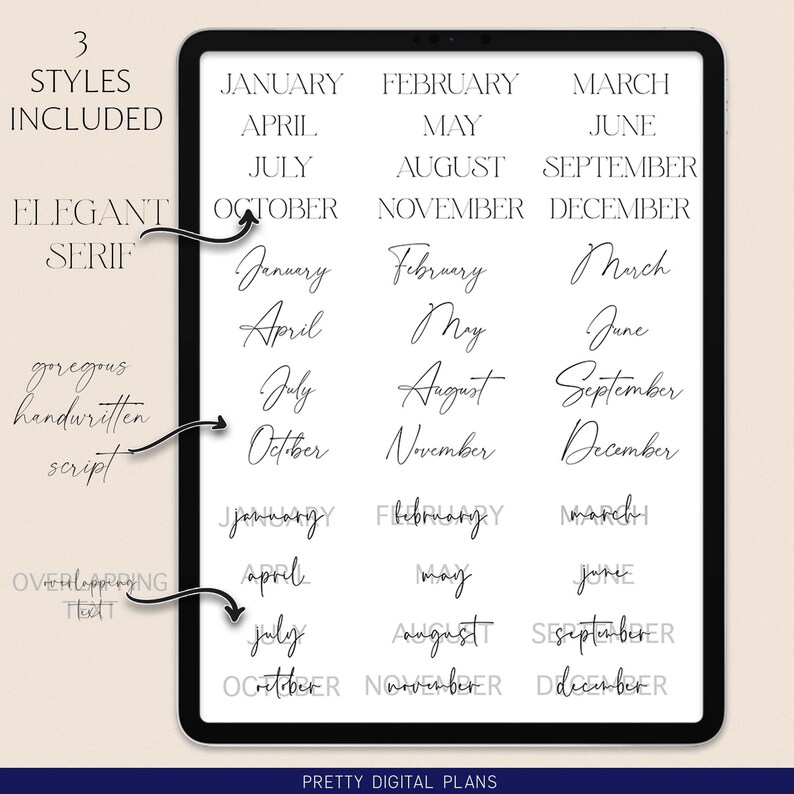 3
STYLES
INCLUDED
ELEGANT
SERIF
goregous
handwritten
script
OVERLAPPING overlapping
TEXT text
JANUARY FEBRUARY MARCH
APRIL MAY JUNE
JULY AUGUST SEPTEMBER
OCTOBER NOVEMBER DECEMBER
January February March
April May June
July August September
October November December
JANUARY january FEBRUARY february MARCH march
APRIL april MAY may JUNE june
JULY july AUGUST august SEPTEMBER september
OCTOBER october NOVEMBER november DECEMBER december
PRETTY DIGITAL PLANS